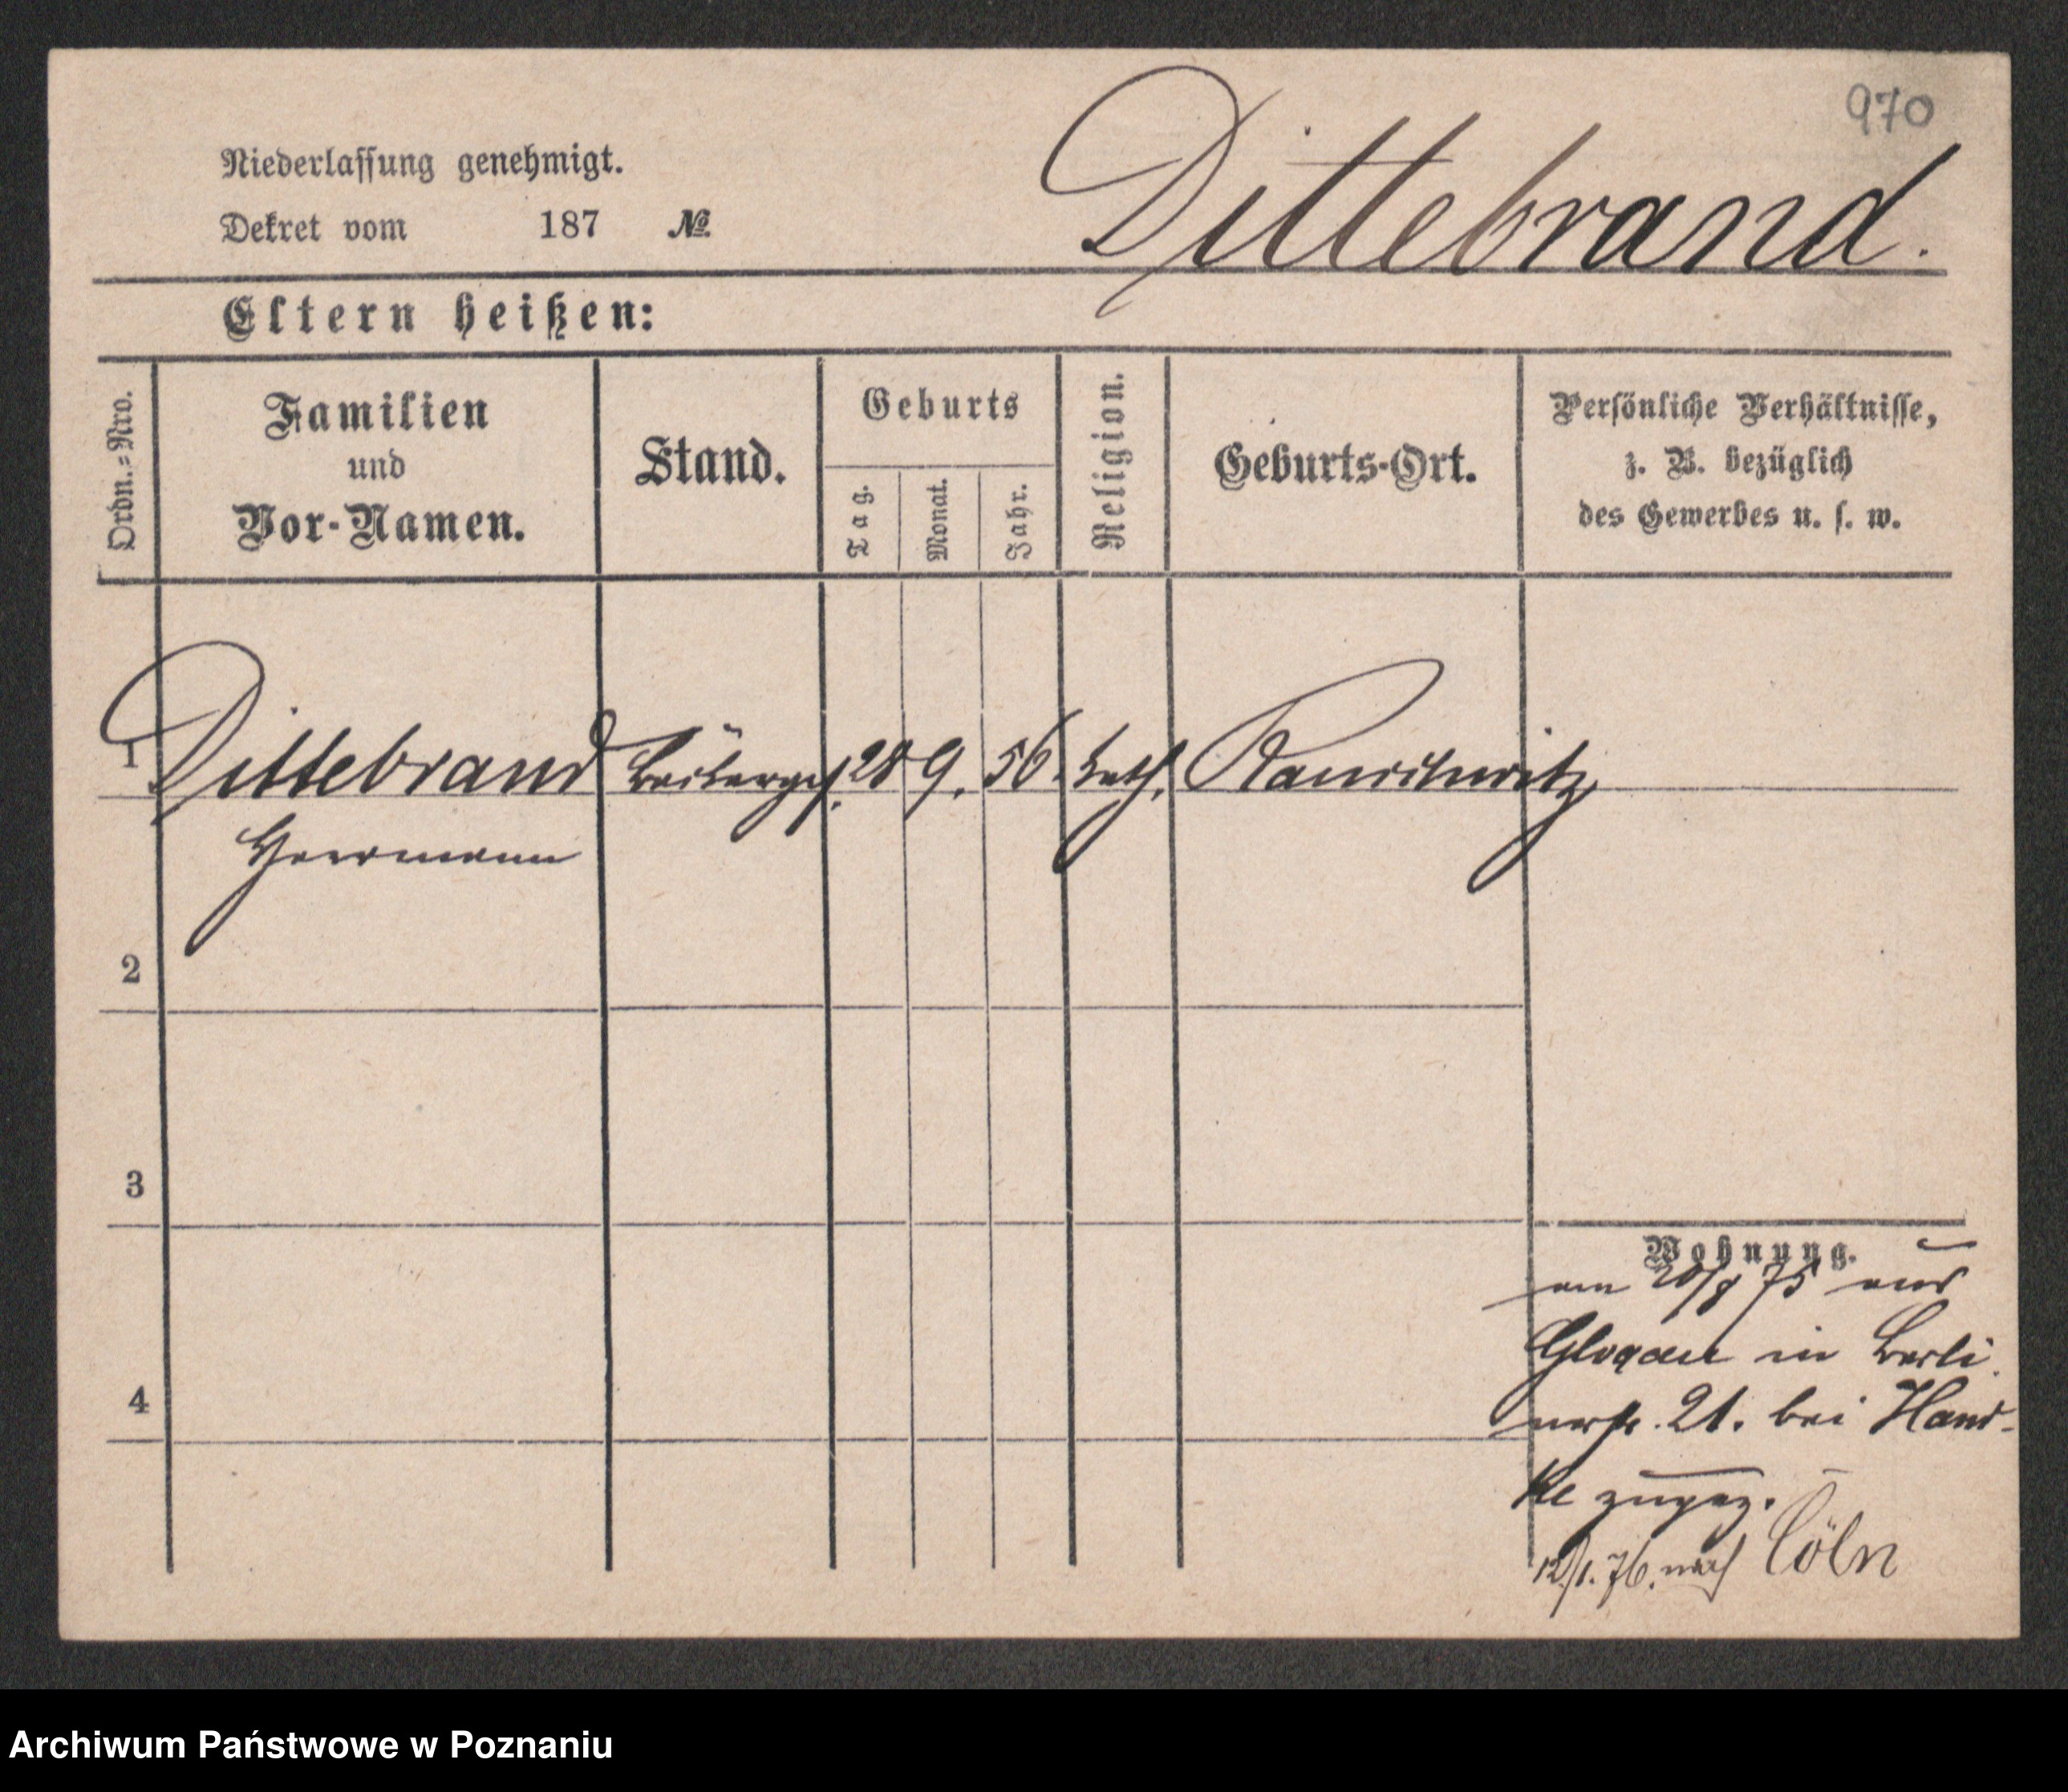 970
Dittebrand.
Niederlassung genehmigt.
Dekret vom 187 №
Eltern heißen:
Ordn.=Nro.
Familien
und
Vor-Namen.
Stand.
Geburts
Tag.
Monat.
Jahr.
Religion.
Geburts-Ort.
Persönliche Verhältnisse,
z. B. bezüglich
des Gewerbes u. s. w.
1 Dittebrand 28 9. 56. kath. Rauschwitz
Herrmann
2
3
4
Wohnung.
am 20/9 75 aus
Glogau in Berli
nerstr. 21. bei Hand-
ke zugez.
12/1. 76. nach Cöln
Archiwum Państwowe w Poznaniu